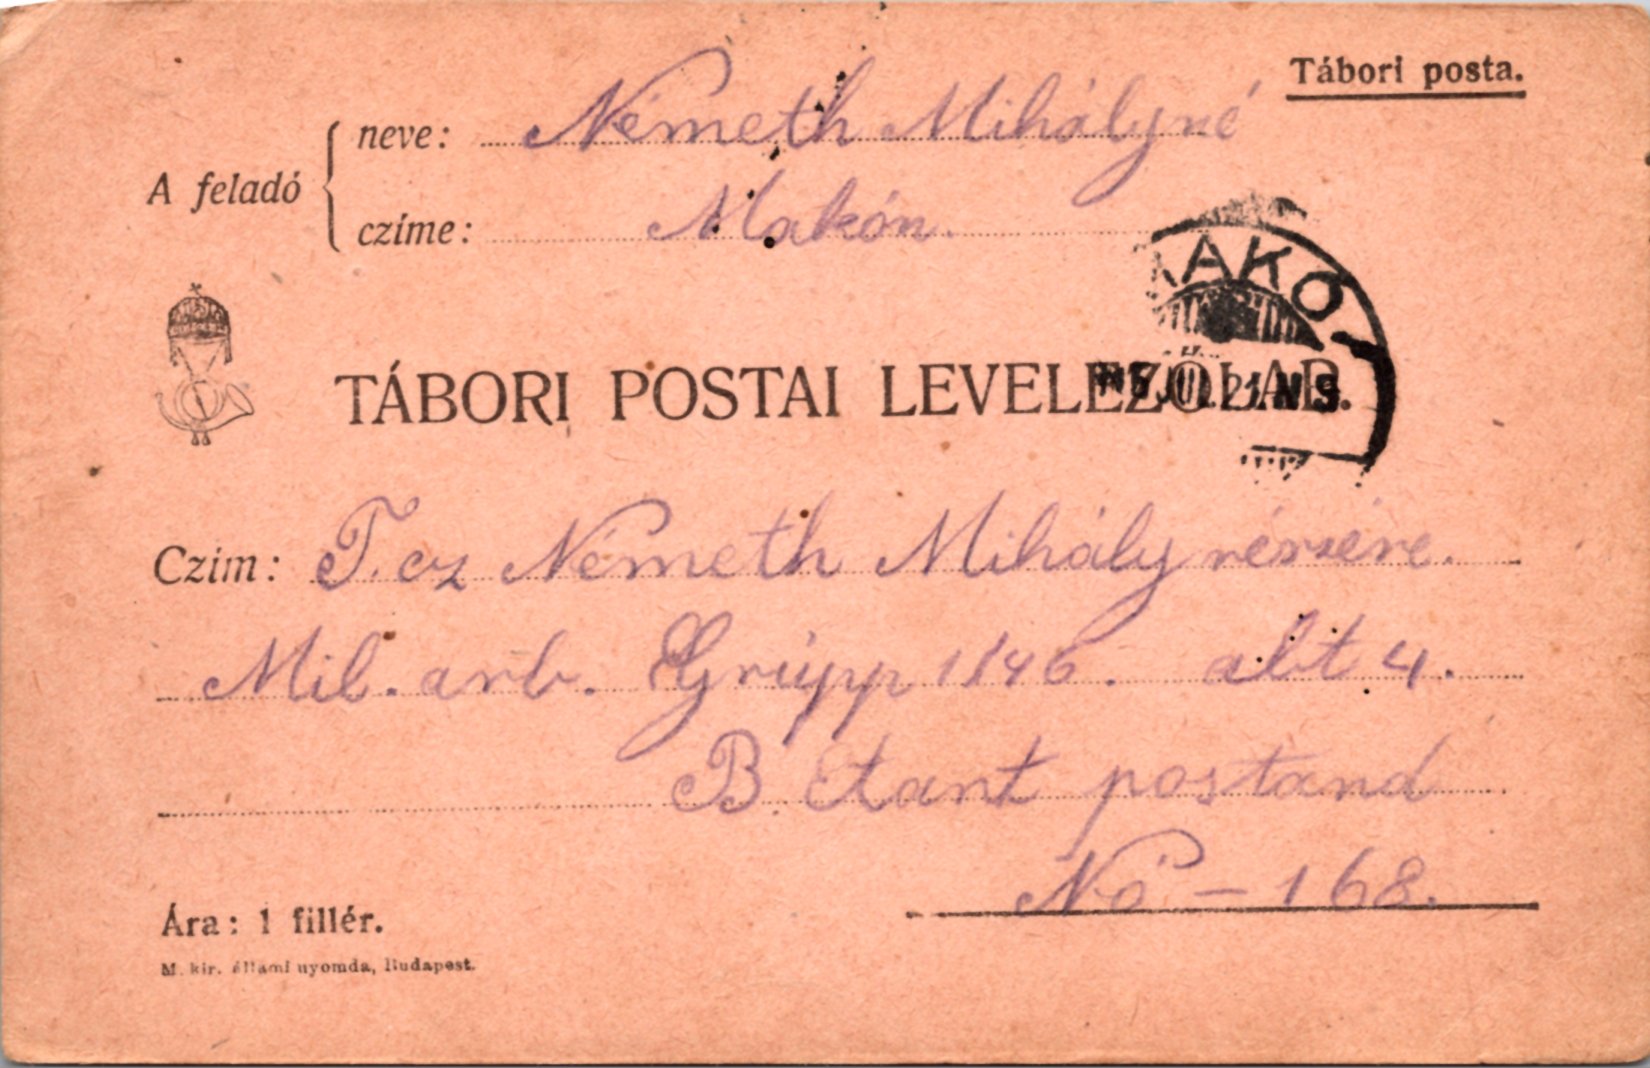 Tábori posta.
A feladó
neve: Németh Mihályné
czíme: Makón.
MAKÓ
915 JUL. 21. N 9.
TÁBORI POSTAI LEVELEZŐLAP.
Czím: T. cz Németh Mihály részére.
Mil. arb. Grúpp 1/46. abt 4.
B. Etant postand
No - 168.
Ára: 1 fillér.
M. kir. állami nyomda, Budapest.